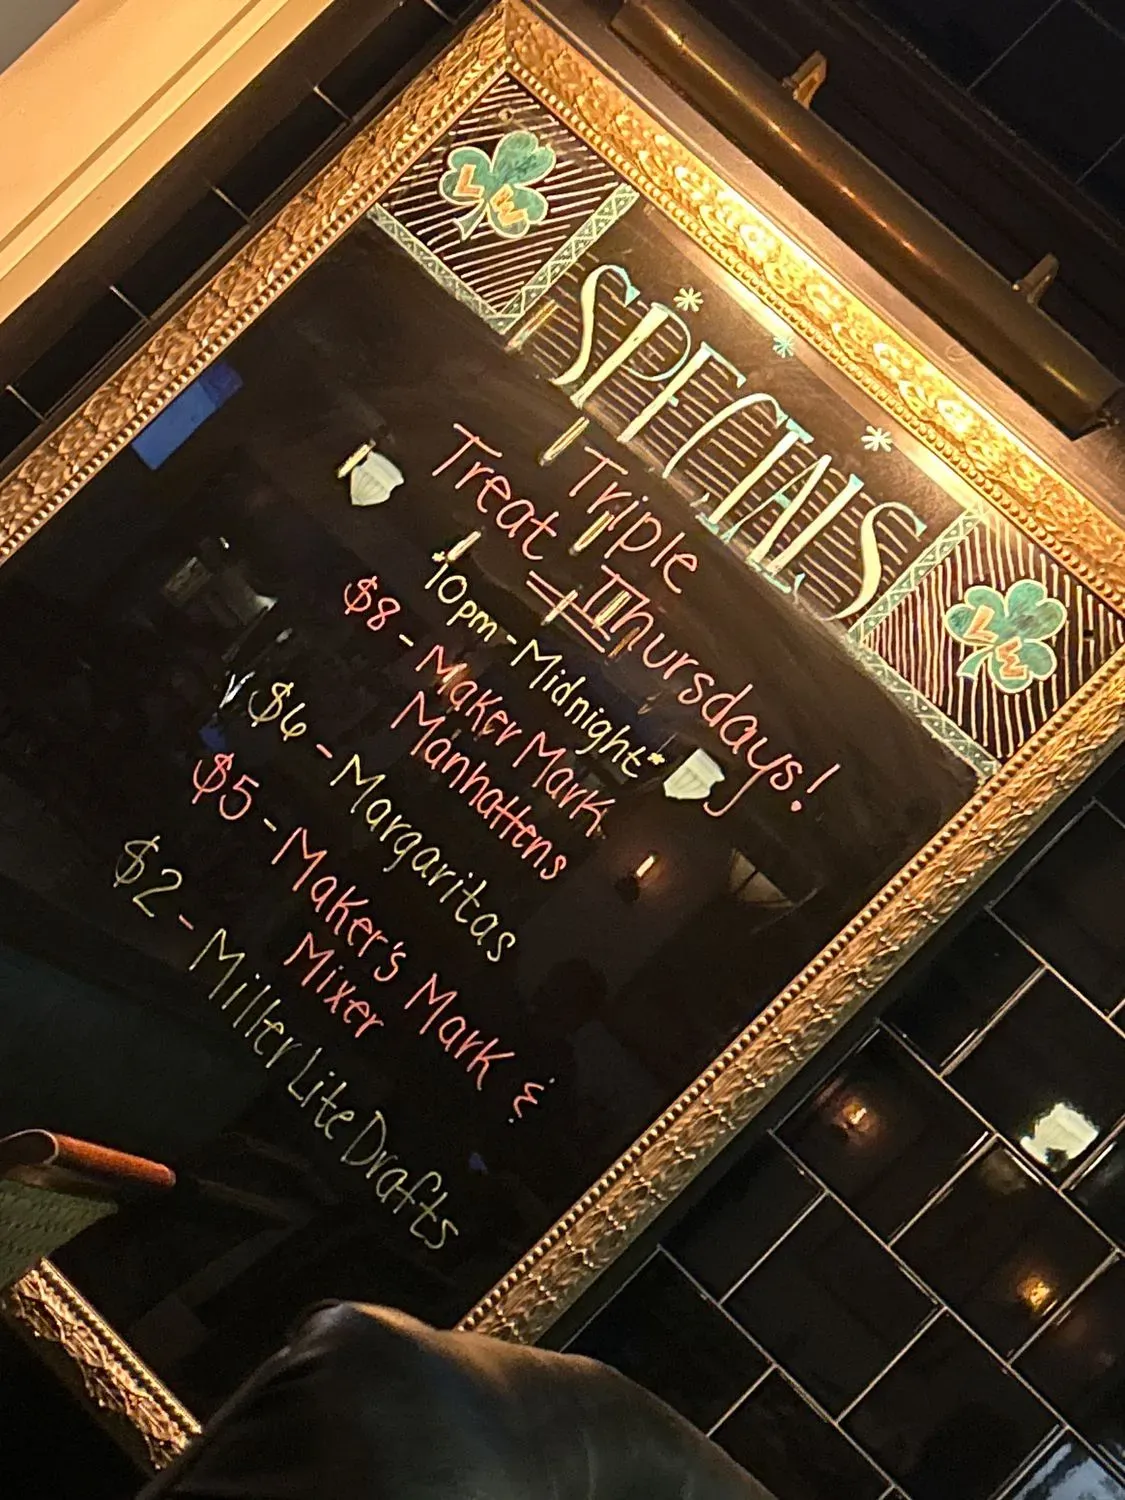 L W
SPECIALS
L W
Triple
Treat Thursdays!
*10pm-Midnight*
$8-Maker Mark
Manhattens
$6-Margaritas
$5-Maker's Mark &
Mixer
$2-Miller Lite Drafts